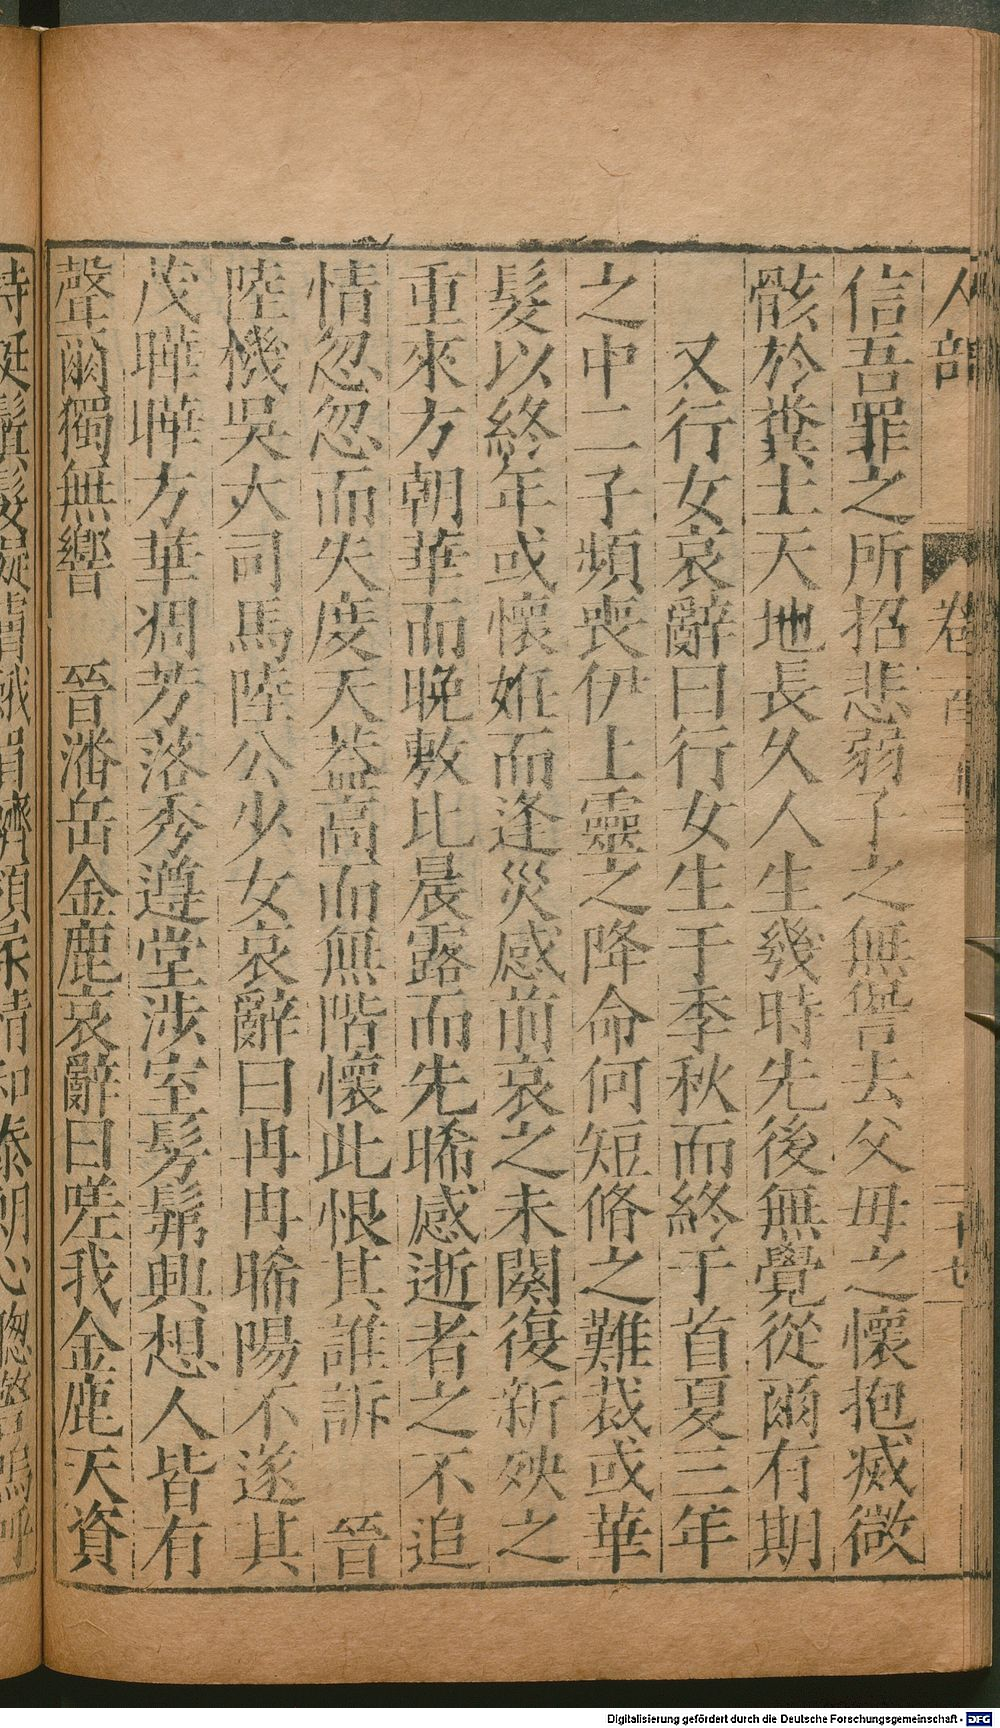 人部
卷
二十七
信吾罪之所招悲弱子之無愆去父母之懷抱滅微
骸於糞土天地長久人生幾時先後無覺從爾有期
又行女哀辭曰行女生于季秋而終于首夏三年
之中二子頻喪伊上靈之降命何短脩之難裁或華
髮以終年或懷姙而逢災感前哀之未闋復新殃之
重來方朝華而晚敷比晨露而先晞感逝者之不追
情忽忽而失度天蓋高而無階懷此恨其誰訴 晉
陸機吳大司馬陸公少女哀辭曰冉冉晞陽不遂其
茂曄曄方華凋芳落秀遵堂涉室髣髴興想人皆有
聲爾獨無響 晉潘岳金鹿哀辭曰嗟我金鹿天資
Digitalisierung gefördert durch die Deutsche Forschungsgemeinschaft - DFG